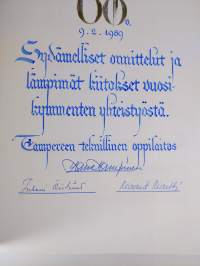 60v.
9.2.1989
Sydämelliset onnittelut ja
lämpimät kiitokset vuosi-
kymmenten yhteistyöstä.
Tampereen teknillinen oppilaitos